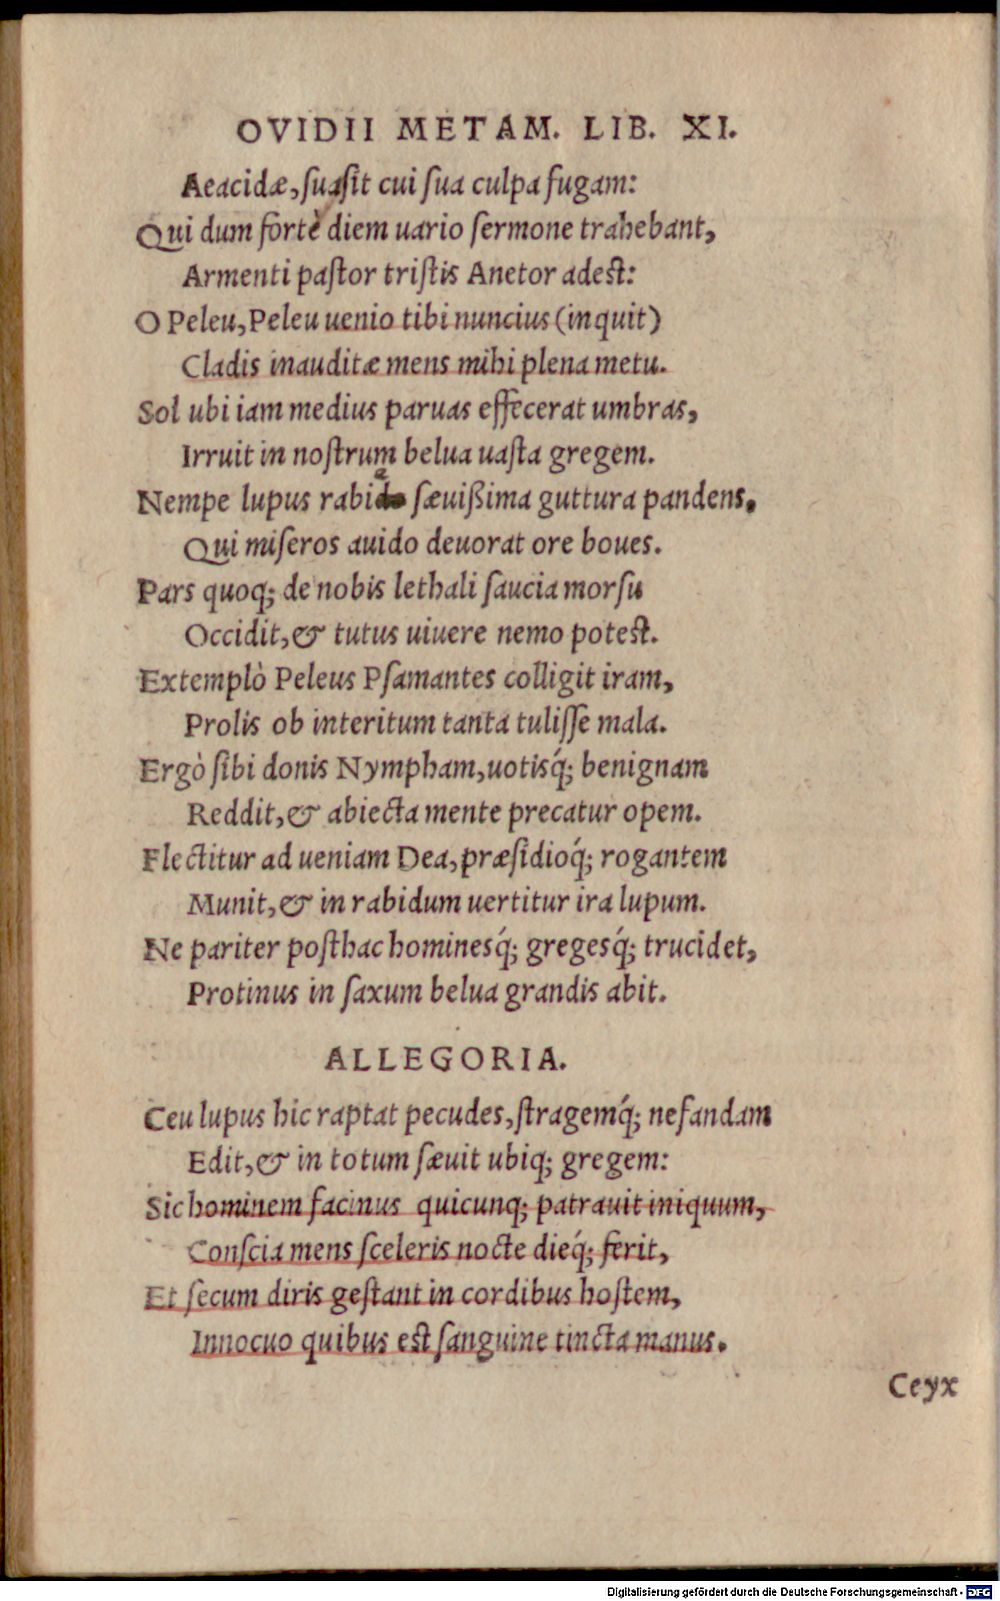 OVIDII METAM. LIB. XI.
Aeacidæ, ſuaſit cui ſua culpa fugam:
Qui dum fortè diem uario ſermone trahebant,
Armenti paſtor triſtis Anetor adest:
O Peleu, Peleu uenio tibi nuncius (inquit)
Cladis inauditæ mens mihi plena metu.
Sol ubi iam medius paruas effecerat umbras,
Irruit in noſtrum belua uaſta gregem.
Nempe lupus rabida ſæuißima guttura pandens,
Qui miſeros auido deuorat ore boues.
Pars quoq; de nobis lethali ſaucia morſu
Occidit, & tutus uiuere nemo potest.
Extemplò Peleus Pſamantes colligit iram,
Prolis ob interitum tanta tuliſſe mala.
Ergò ſibi donis Nympham, uotisq́; benignam
Reddit, & abiecta mente precatur opem.
Flectitur ad ueniam Dea, præſidioq́; rogantem
Munit, & in rabidum uertitur ira lupum.
Ne pariter poſthac hominesq́; gregesq́; trucidet,
Protinus in ſaxum belua grandis abit.
ALLEGORIA.
Ceu lupus hic raptat pecudes, ſtragemq́; nefandam
Edit, & in totum ſæuit ubiq; gregem:
Sic hominem facinus quicunq; patrauit iniquum,
Conſcia mens ſceleris nocte dieq́; ferit,
Et ſecum diris geſtant in cordibus hoſtem,
Innocuo quibus est ſanguine tincta manus.
Ceyx
Digitalisierung gefördert durch die Deutsche Forschungsgemeinschaft - DFG